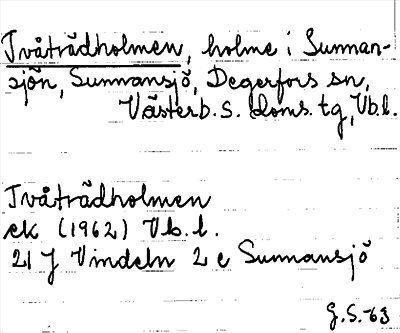 Tvåträdholmen, holme i Sunnan-
sjön, Sunnansjö, Degerfors sn,
Västerb. s. doms. tg, Vb. l.
Tvåträdholmen
ek (1962) Vb. l.
21 J Vindeln 2 e Sunnansjö
G.S.-63